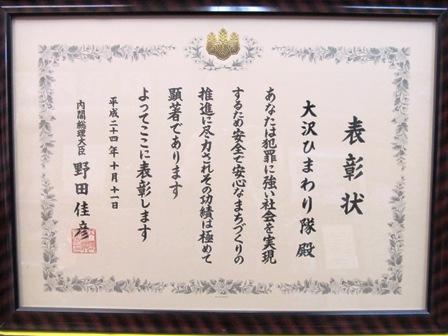 表彰状
大沢ひまわり隊 殿
あなたは犯罪に強い社会を実現
するため安全で安心なまちづくりの
推進に尽力されその功績は極めて
顕著であります
よってここに表彰します
平成二十四年十月十一日
内閣総理大臣 野田佳彦